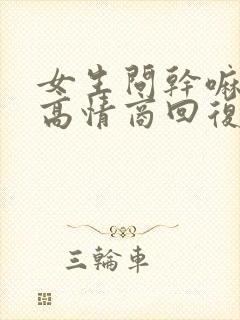 女生問幹嘛
高情商回復
三輪車